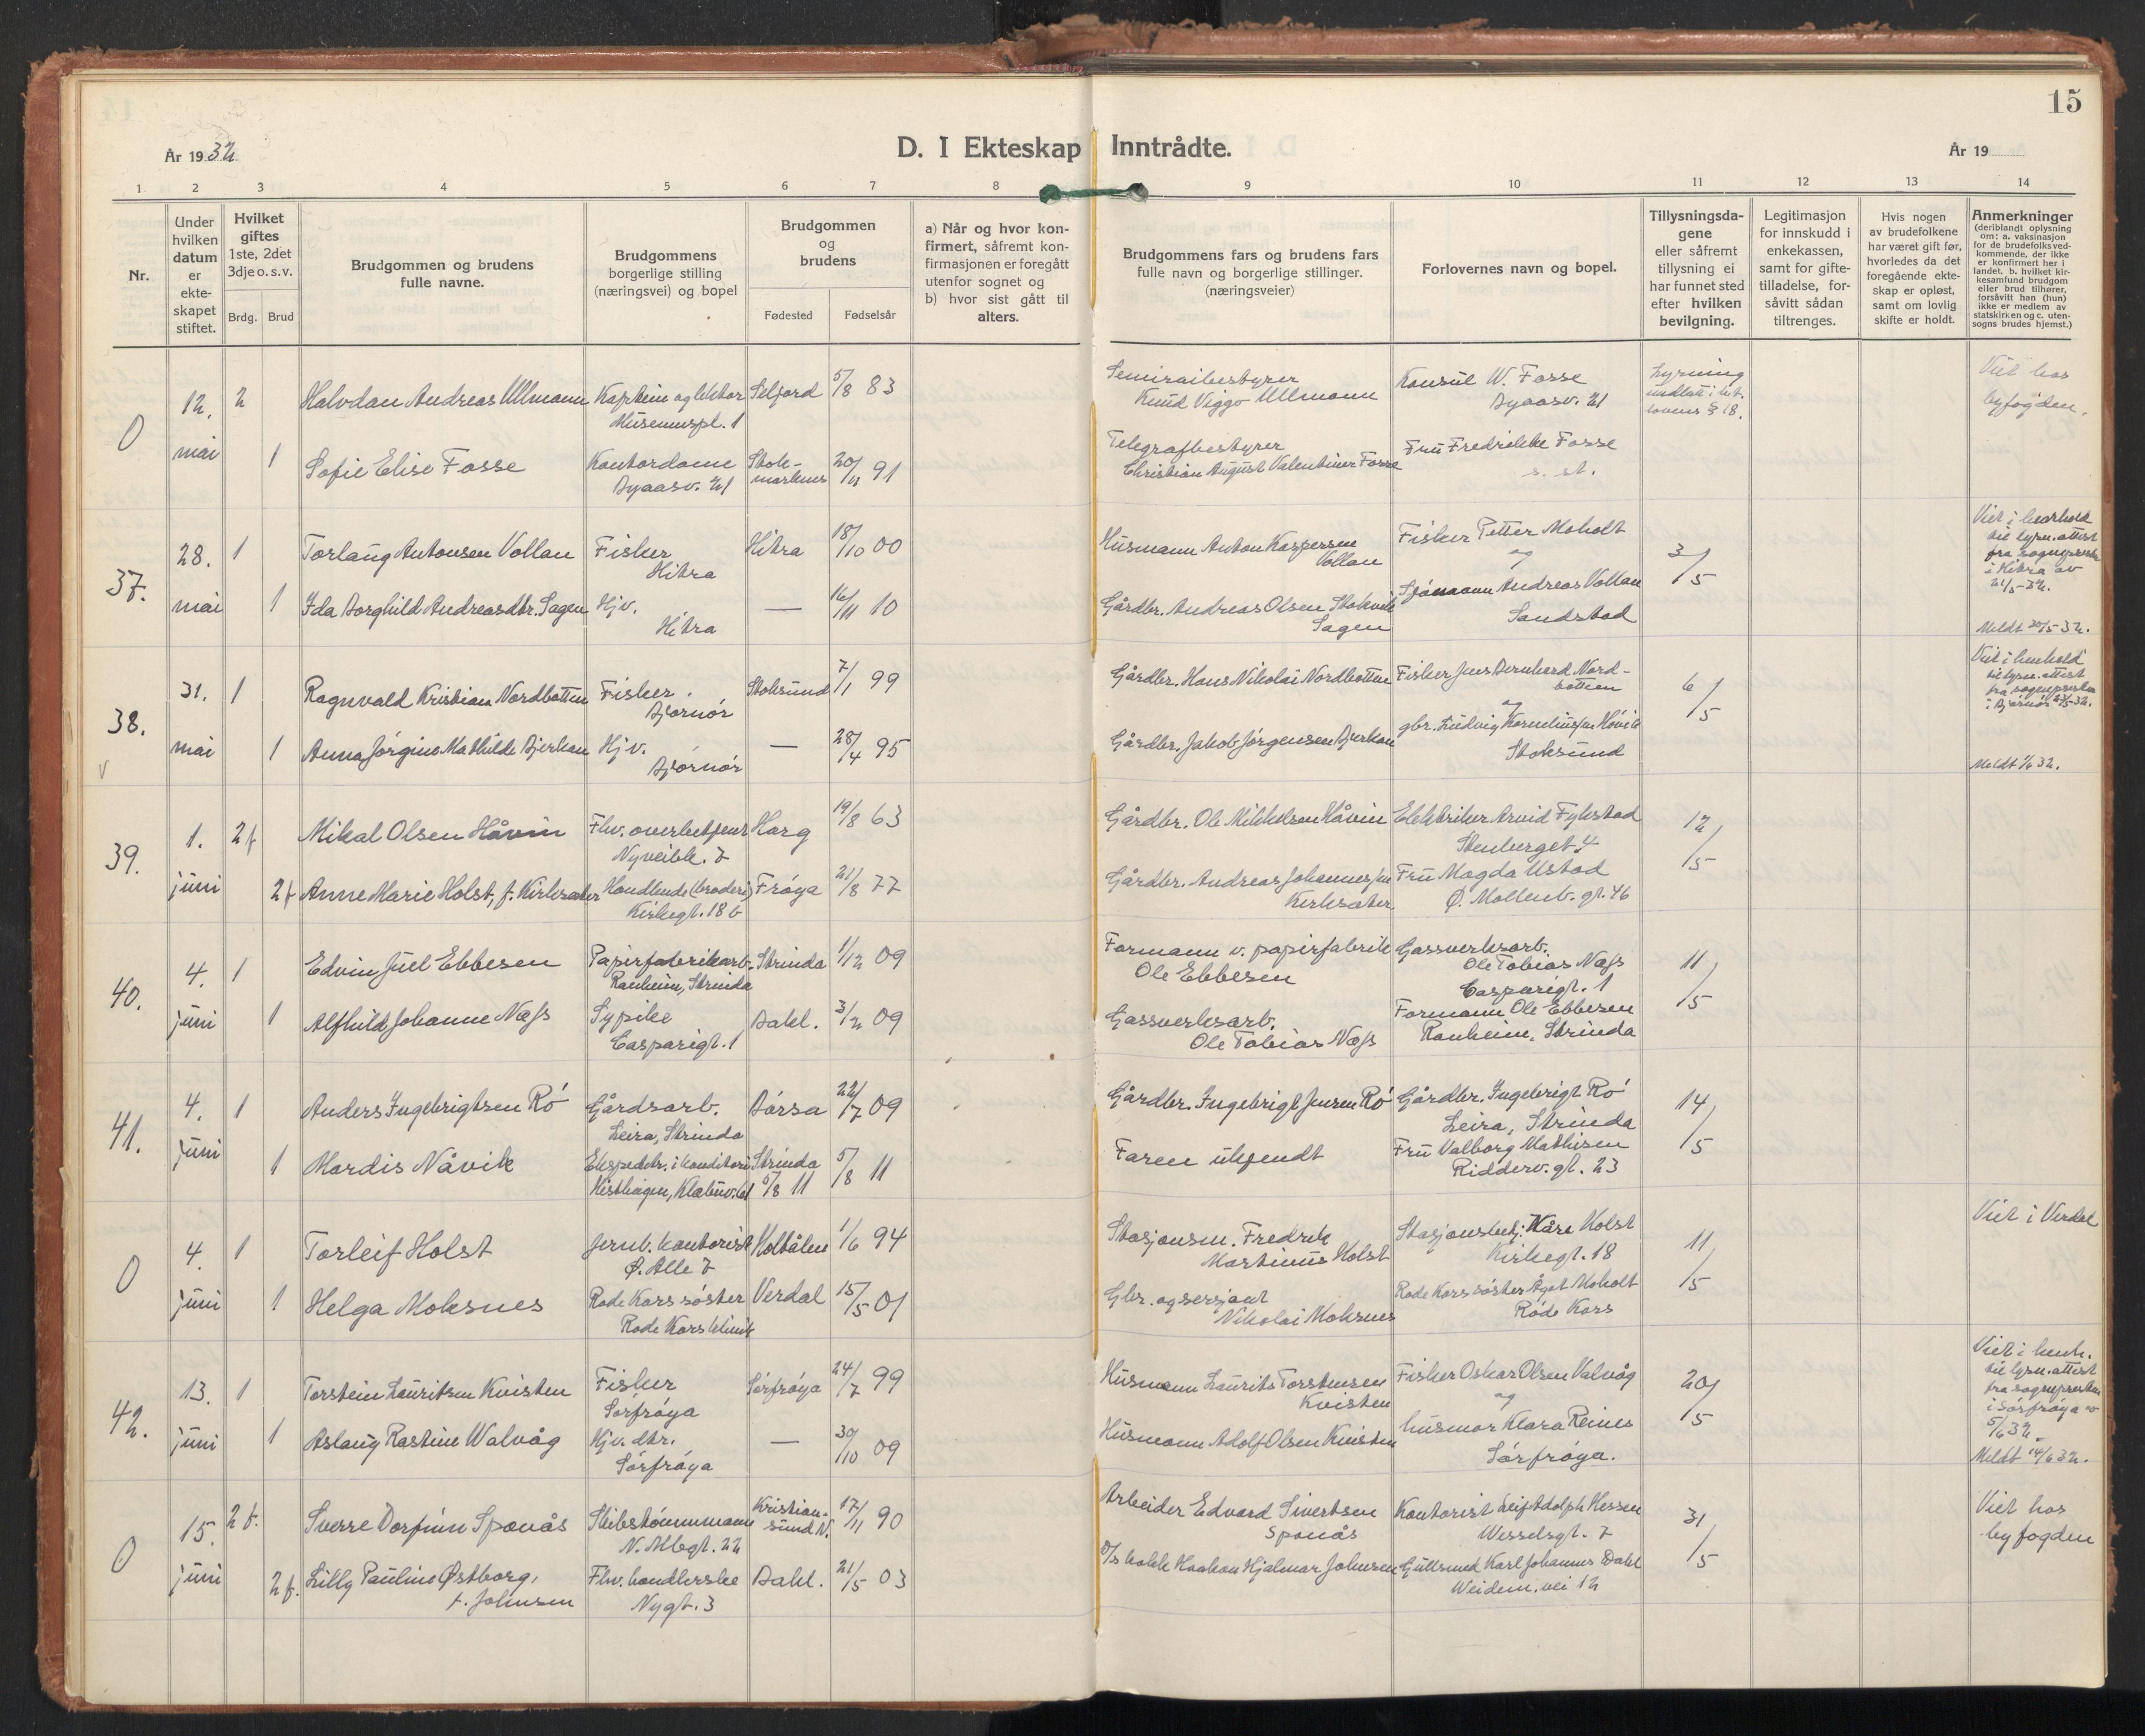 15
År 1932
D. I Ekteskap Inntrådte.
År 19
1 2 3 4 5 6 7 8 9 10 11 12 13 14
Nr.
Under hvilken datum er ekteskapet stiftet.
Hvilket giftes 1ste, 2det 3dje o. s. v.
Brdg. Brud
Brudgommen og brudens fulle navne.
Brudgommens borgerlige stilling (næringsvei) og bopel
Brudgommen og brudens
Fødested Fødselsår
a) Når og hvor konfirmert, såfremt konfirmasjonen er foregått utenfor sognet og
b) hvor sist gått til alters.
Brudgommens fars og brudens fars fulle navn og borgerlige stillinger. (næringsveier)
Forlovernes navn og bopel.
Tillysningsdagene eller såfremt tillysning ei har funnet sted efter hvilken bevilgning.
Legitimasjon for innskudd i enkekassen, samt for giftetilladelse, forsåvitt sådan tiltrenges.
Hvis nogen av brudefolkene har været gift før, hvorledes da det foregående ekteskap er opløst, samt om lovlig skifte er holdt.
Anmerkninger (deriblandt oplysning om: a. vaksinasjon for de brudefolks vedkommende, der ikke er konfirmert her i landet. b. hvilket kirkesamfund brudgom eller brud tilhører, forsåvitt han (hun) ikke er medlem av statskirken og c. utensogns brudes hjemst.)
0
12. mai
2
Halvdan Andreas Ullmann
Kaptein og lektor
Museumspl. 1
Seljord 5/8 83
Knud Viggo Ullmann
Konsul W. Fosse
Byaasv. 21
Lysning
undlatt i
lovens § 18.
Viet hos
byfogden.
1
Sofie Elise Fosse
Kontordame
Byaasv. 21
Stokmarknes 91
Telegrafbestyrer
Christian August Valentiner Fosse
Fru Fredrikke Fosse
s. st.
37.
28. mai
1
Torlaug Antonsen Vollan
Fisker
Hitra
Hitra 18/10 00
Husmann Anton Kaspersen
Vollan
Fisker Petter Moholt
og
3/5
Viet i henhold
til lysn. attest
fra sogneprest
i Hitra av
21/5-32.
1
Ida Borghild Andreasdtr. Sagen
Hjv.
Hitra
— 16/11 10
Gårdbr. Andreas Olsen Stokvik
Sagen
Sjømann Andreas Vollan
Sandstad
Meldt 30/5 32.
38.
31. mai
1
Ragnvald Kristian Nordbotten
Fisker.
Bjørnør
Stoksund 7/1 99
Gårdbr. Hans Nikolai Nordbotten
Fisker Jens Bernhard Nordbotten
og
6/5
Viet i henhold
til lysn. attest
fra sognepresten
i Bjørnør 32.
v
1
Anna Jørgine Mathilde Bjerkan
Hjv.
Bjørnør
— 28/4 95
Gårdbr. Jakob Jørgensen Bjerkan
gbr. Ludvig Korneliussen Hövik
Stoksund
Meldt 1/6 32.
39.
1. juni
2 f
Mikal Olsen Håvin
Fhv. overbetjent
Nyveibk. 7
Horg 19/8 63
Gårdbr. Ole Mikkelsen Håvin
Elektriker Arvid Fykstad
Stenberget 4
12/5
2 f
Anne Marie Holst, f. Kirksæter
Handlende (broderi)
Kirkegt. 18 b
Frøya 21/8 77
Gårdbr. Andreas Johannessen
Kirksæter
Fru Magda Ustad
Ø. Mollenb. gt. 46
40.
4. juni
1
Edvin Juel Ebbesen
Papirfabrikarb.
Ranheim, Strinda
Strinda 1/12 09
Formann v. papirfabrik
Ole Ebbesen
Gassverksarb.
Ole Tobias Næss
Casparigt. 1
11/5
1
Alfhild Johanne Næss
Sypike
Casparigt. 1
Bakl. 3/2 09
Gassverksarb.
Ole Tobias Næss
Formann Ole Ebbesen
Ranheim, Strinda
41.
4. juni
1
Anders Ingebrigtsen Rö
Gårdsarb.
Leira, Strinda
Börsa 22/7 09
Gårdbr. Ingebrigt Jensen Rö
Gårdbr. Ingebrigt Rö
Leira, Strinda
14/5
1
Mardis Nåvik
Ekspeditr. i konditori
Strinda
5/8 11 5/8 11
Faren ukjendt
Fru Valborg Mathisen
Ridderv. gt. 23
0
4. juni
1
Torleif Holst
Jernb. kontorist
Ø. Alle 7
Holtålen 1/6 94
Stasjonsm. Fredrik
Martinus Holst
Stasjonsbetj. Kåre Holst
Kirkegt. 18
11/5
Viet i Verdal
1
Helga Moksnes
Røde Kors søster
Røde Kors klinik
Verdal 15/5 01
Gbr. og sersjant
Nikolai Moksnes
Røde Kors søster Ågot Moholt
Røde Kors
42.
13. juni
1
Torstein Lauritsen Kvisten
Fisker
Sørfröya
Sørfröya 24/7 99
Husmann Laurits Torstensen
Kvisten
Fisker Oskar Olsen Valvåg
og
20/5
Viet i henh.
til lysn. attest
fra sognepresten
i Sørfröya
5/6 32.
1
Aslaug Rastine Walvåg
Hjv. dtr.
Sørfröya
— 30/10 09
Husmann Adolf Olsen Kvisten
husmor Klara Reines
Sørfröya.
Meldt 14/6 32.
0
15. juni
2 f.
Sverre Dorfinn Sponås
Skibstömmermann
N. Albgt. 22
Kristiansund N. 17/11 90
Arbeider Edvard Sivertsen
Sponås
Kontorist Leif Adolph Hessen
Wesselsgt. 7
31/5
Viet hos
byfogden
2 f.
Lilly Pauline Østborg,
f. Johnsen
Fhv. handlerske
Nygt. 3
Bakl. 21/5 03
Haakon Hjalmar Johnsen
Gullsmed Karl Johannes Dahl
Weidem. vei 12